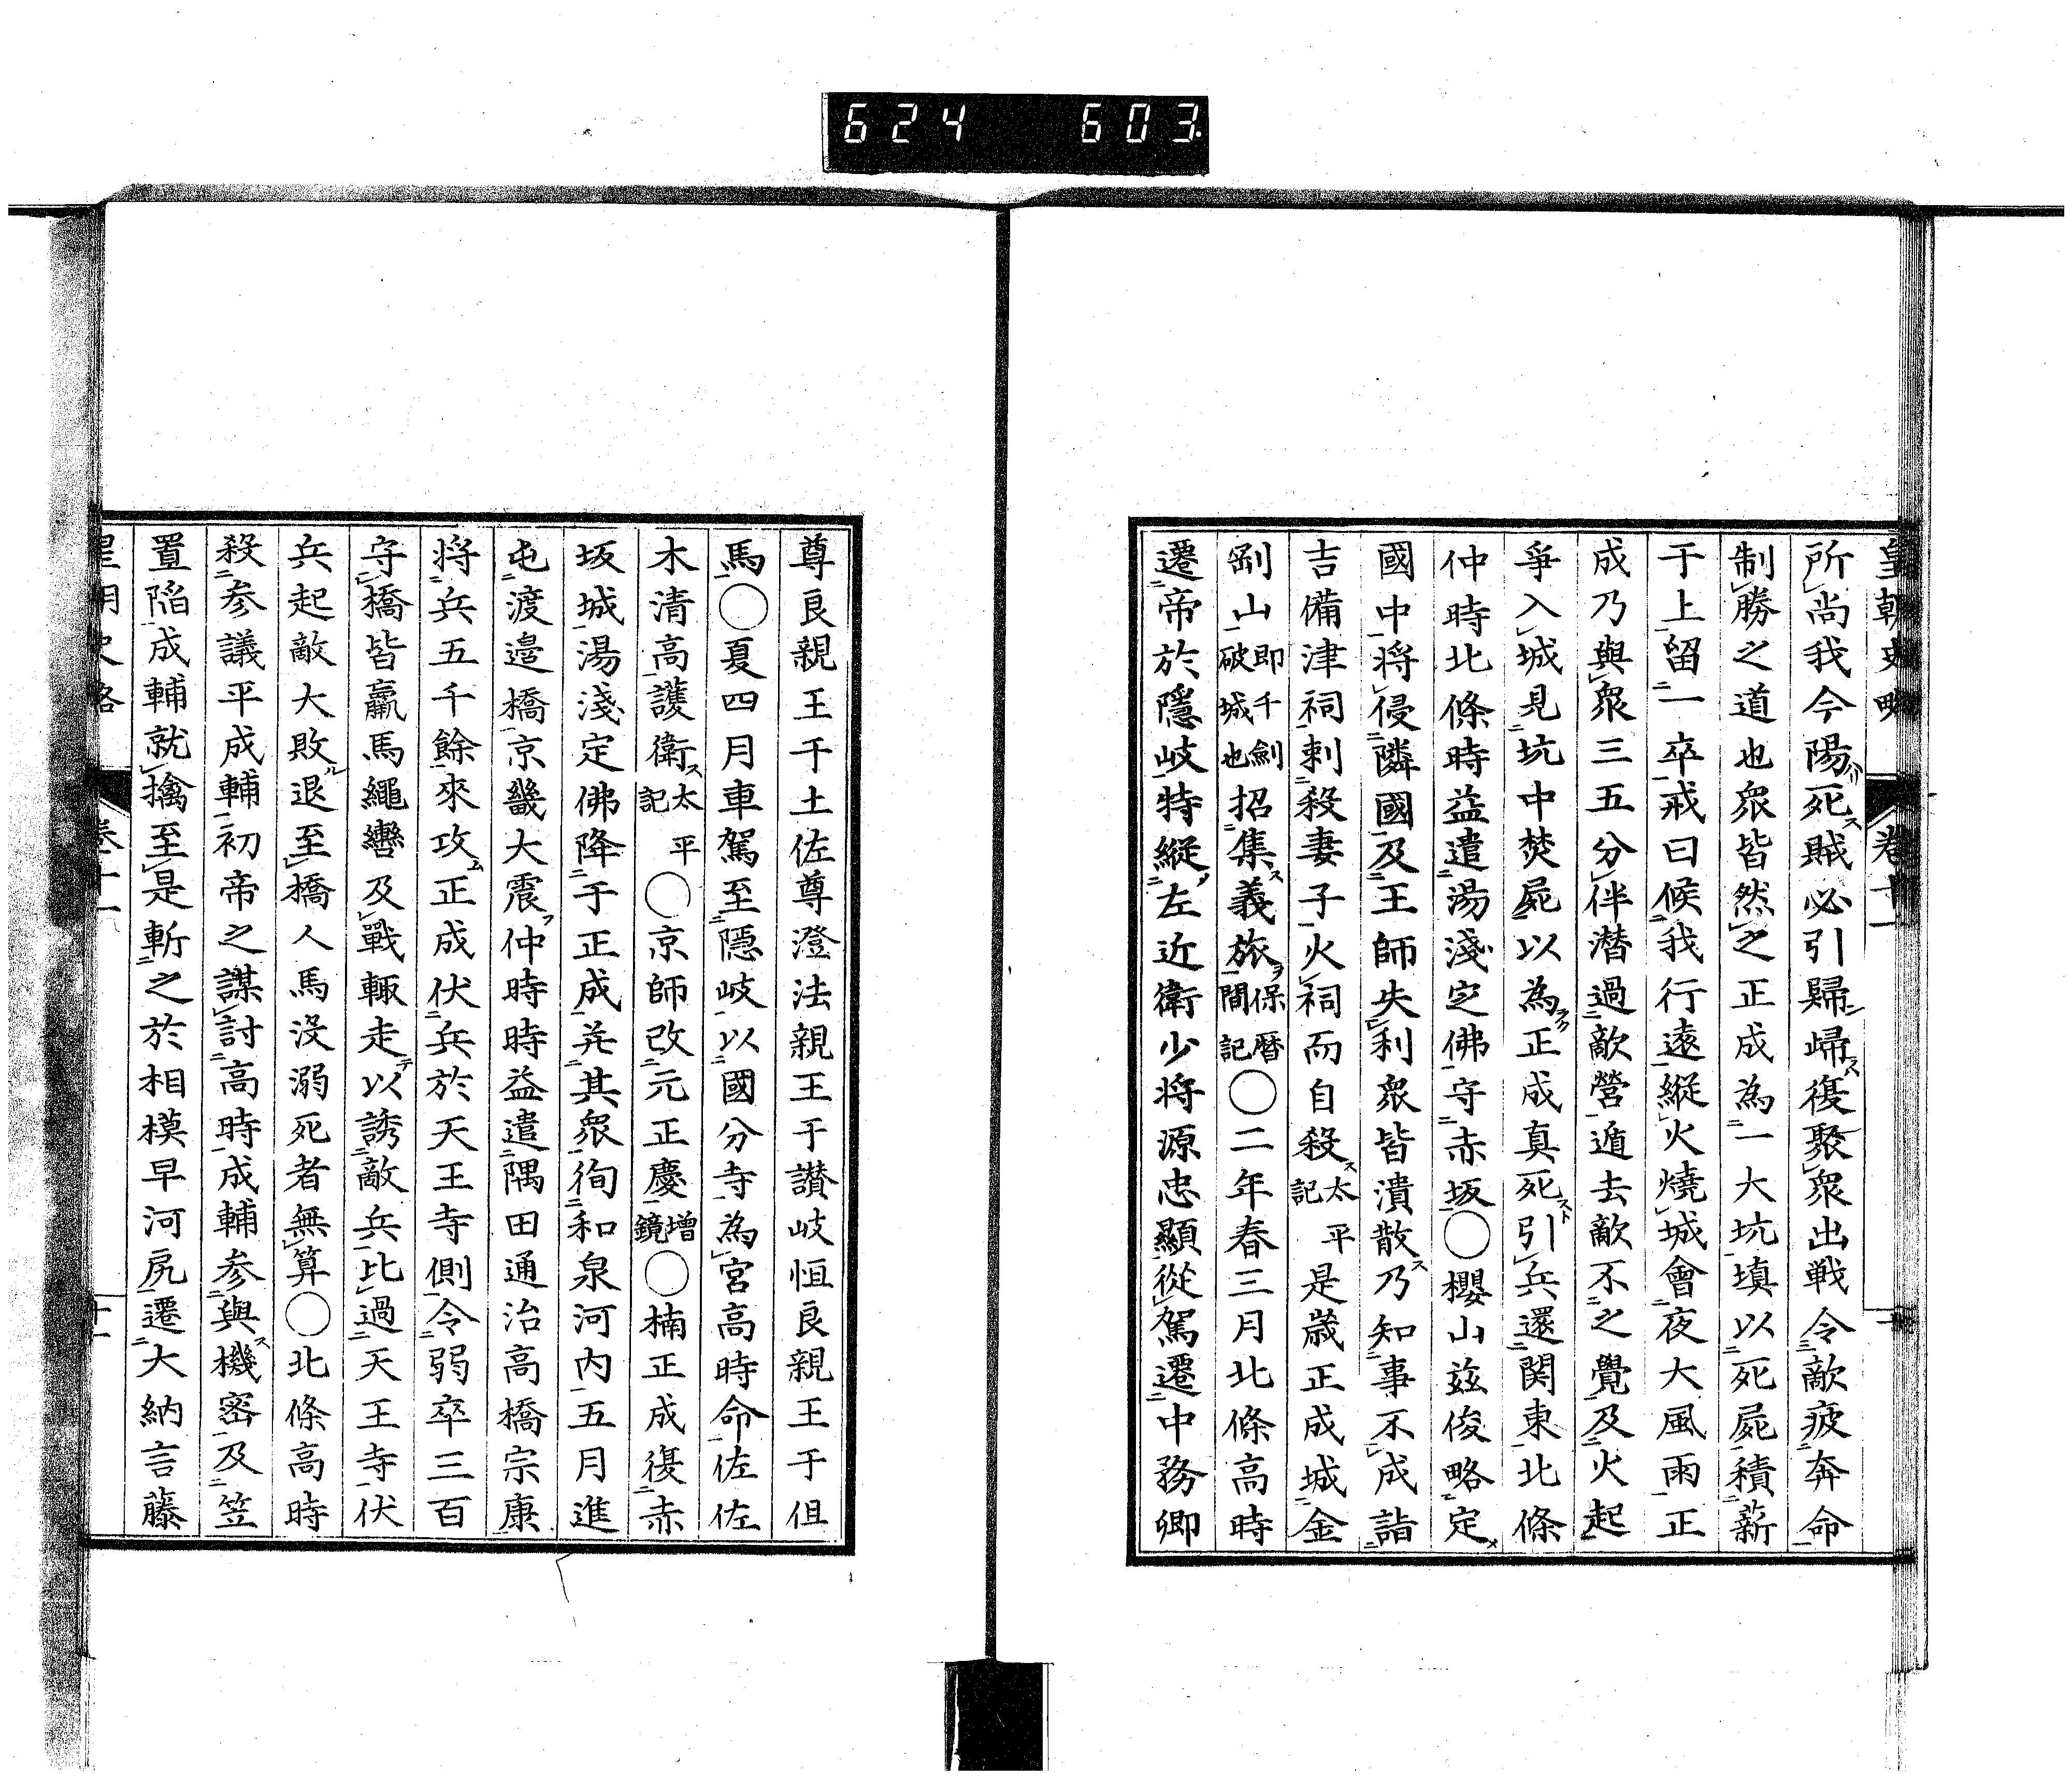 624 603
皇朝史略 卷十一 十一
所尚我今陽死賊必引歸歸復聚衆出戦令敵疲奔命
制勝之道也衆皆然之正成為一大坑填以死屍積薪
于上留一卒戒曰候我行遠縱火燒城會夜大風雨正
成乃與衆三五分伴潜過敵營遁去敵不之覺及火起
爭入城見坑中焚屍以為正成真死引兵還関東北條
仲時北條時益遣湯淺定佛守赤坂○櫻山玆俊略定
國中將侵隣國及王師失利衆皆潰散乃知事不成詣
吉備津祠刺殺妻子火祠而自殺太平記是歳正成城金
剛山即千劍破城也招集義旅保暦間記○二年春三月北條高時
遷帝於隱岐特縱左近衛少将源忠顯從駕遷中務卿
尊良親王于土佐尊澄法親王于讃岐恒良親王于但
馬○夏四月車駕至隱岐以國分寺為宮高時命佐佐
木清高護衛太平記○京師改元正慶增鏡○楠正成復赤
坂城湯淺定佛降于正成并其衆徇和泉河内五月進
屯渡邉橋京畿大震仲時時益遣隅田通治高橋宗康
将兵五千餘來攻正成伏兵於天王寺側令弱卒三百
守橋皆羸馬繩轡及戰輙走以誘敵兵比過天王寺伏
兵起敵大敗退至橋人馬没溺死者無算○北條高時
殺参議平成輔初帝之謀討高時成輔参與機密及笠
置陷成輔就擒至是斬之於相模早河尻遷大納言藤